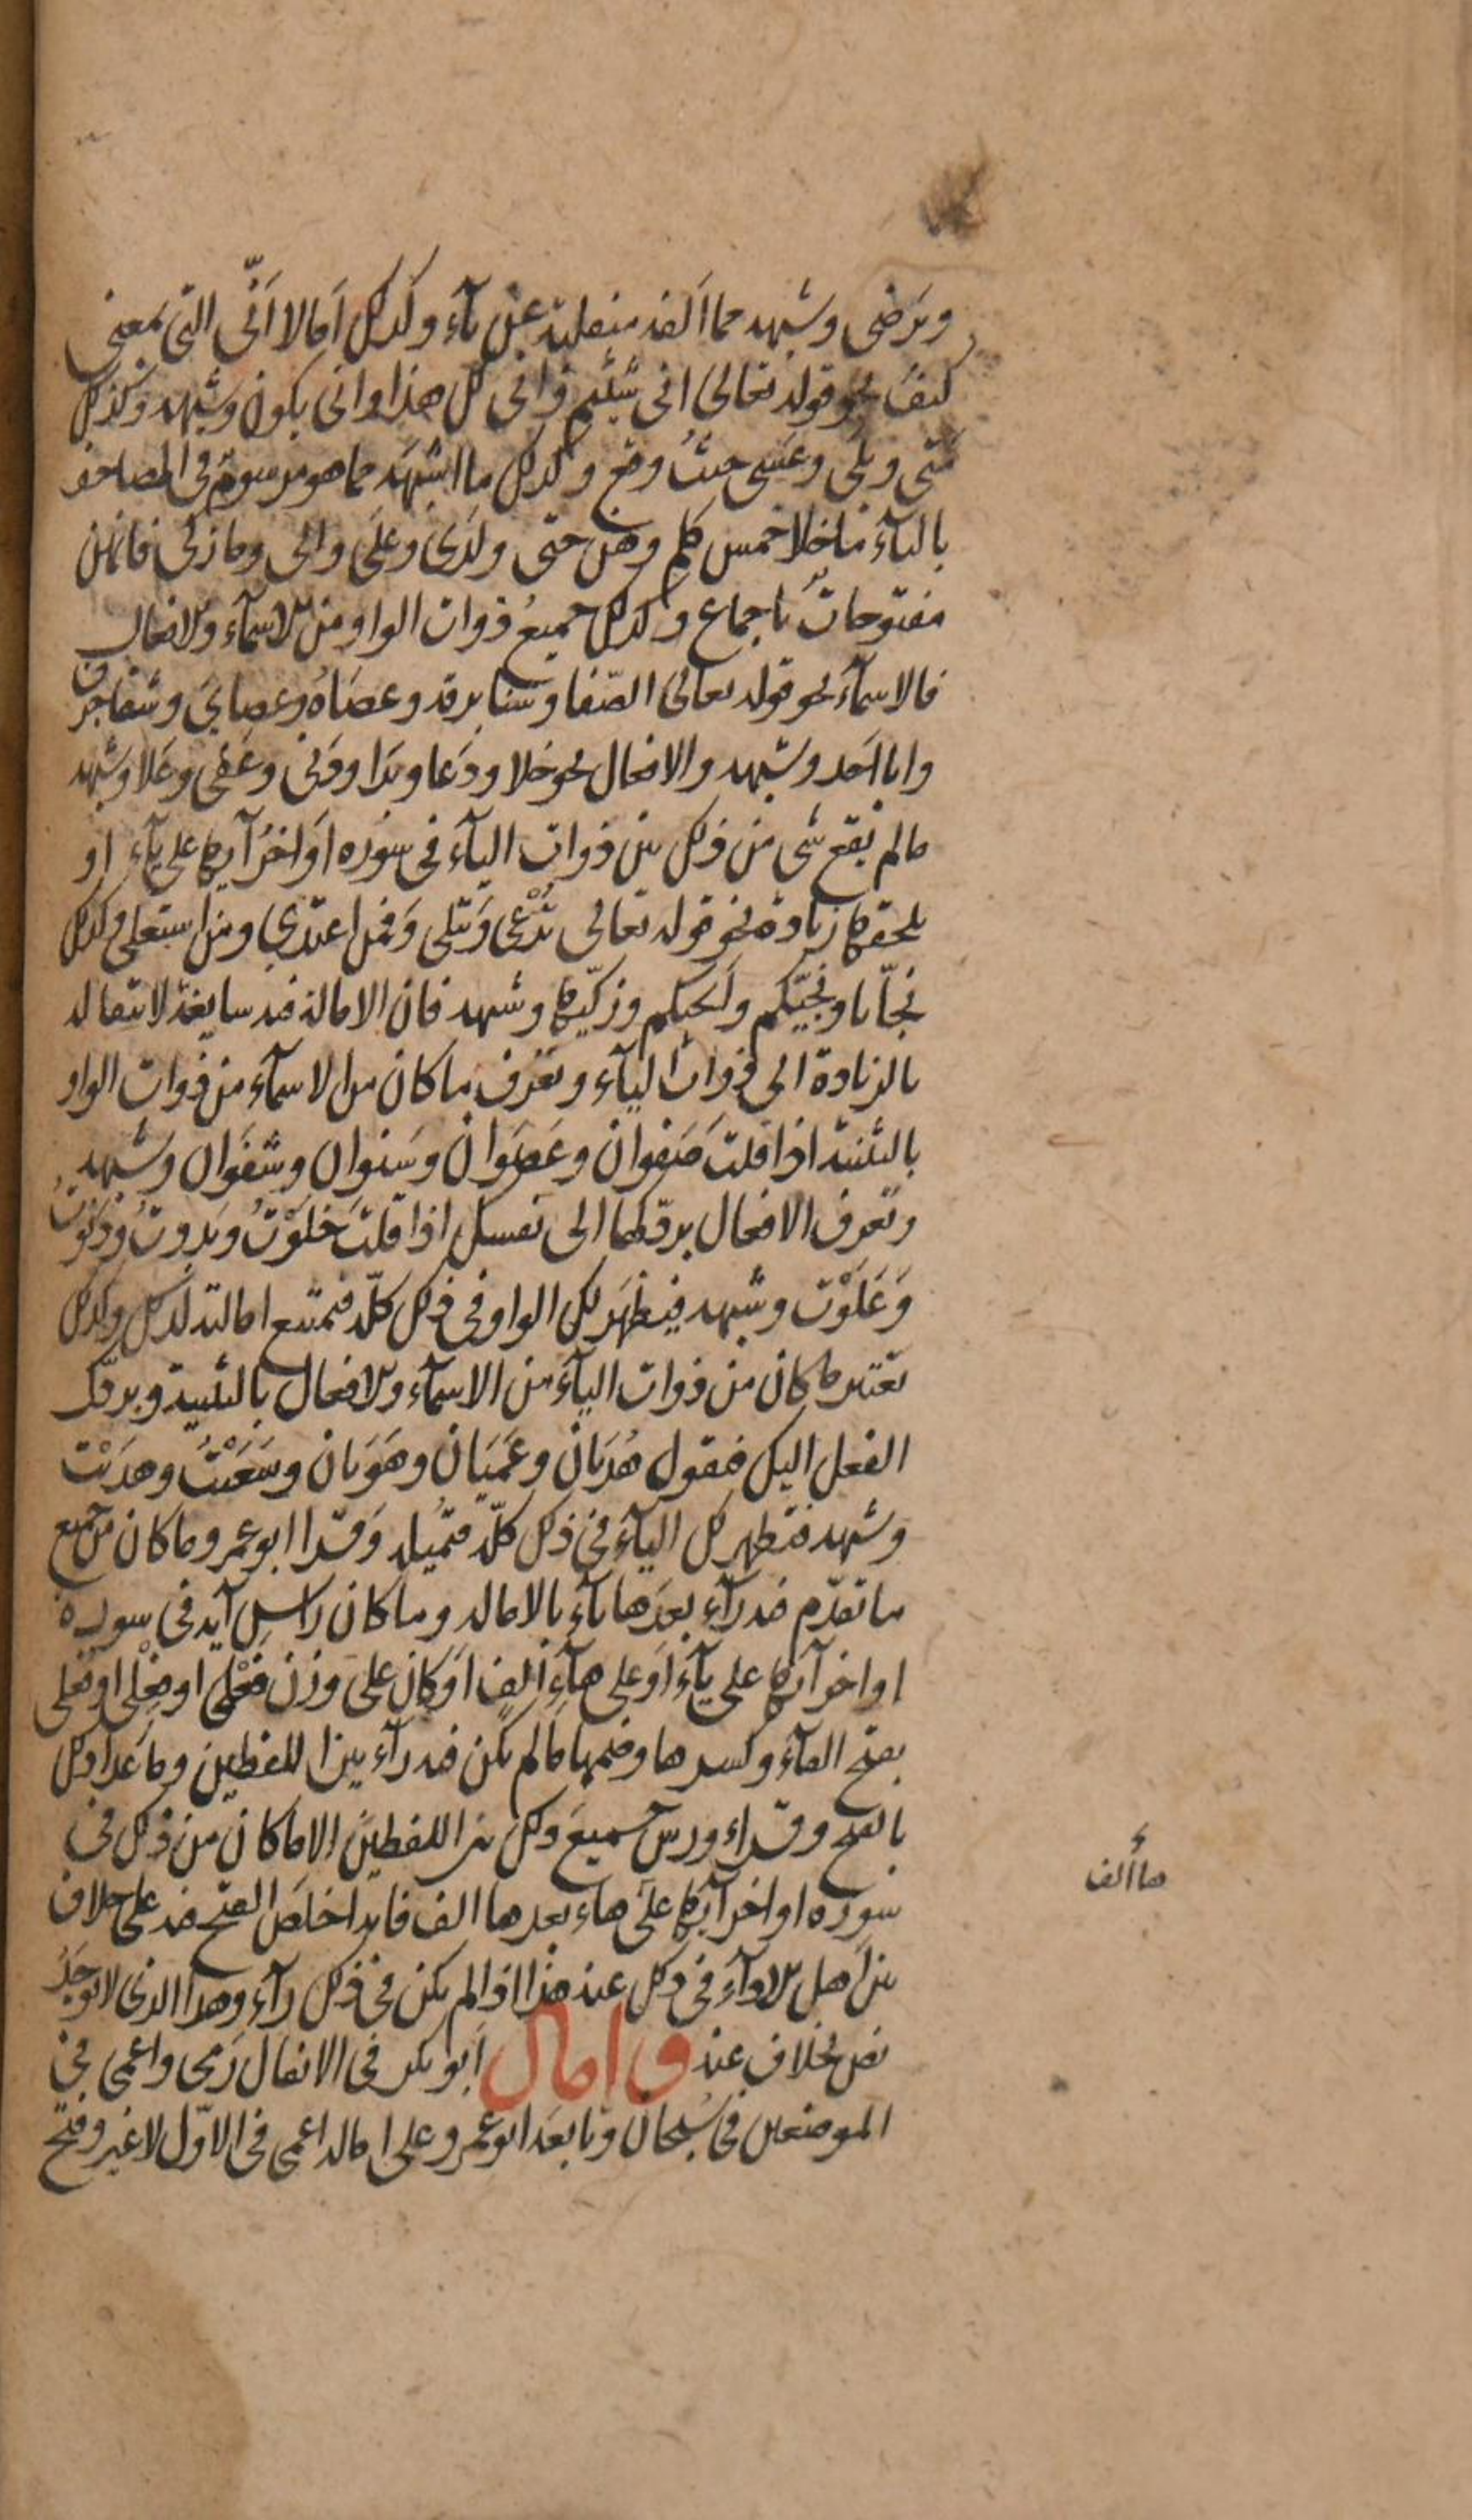 ويرضى وشبهه مما الفه منقلبة عن يآء وكذلك امالا انّى التي بمعنى
كيف نحو قوله تعالى انى شئتم وانى لك هذا وانى يكون وشبهه وكذلك
متى وبلى وعسى حيث وقع وكذلك ما اشبهه مما هو مرسوم في المصاحف
باليآء ما خلا خمس كلم وهن حتى ولدى وعلى والى وما زكى فانهن
مفتوحات باجماع وكذلك جميع ذوات الواو من الاسمآء والافعال
فالاسمآء نحو قوله تعالى الصّفا وسنا برقه وعصاه وعصاي وشفا جرف
وابا احد وشبهه والافعال نحو خلا ودعا وبدا ودنى وعفى وعلا وشبهه
ما لم يقع شى من ذلك بين ذوات اليآء في سوره اواخر آيها على يآء او
يلحقها زيادة نحو قوله تعالى تدعى وتتلى وفمن اعتدى ومن استعلى وكذلك
نجّانا ونجّيكم وانجيكم وزكّيها وشبهه فان الامالة فيه سايغة لانتقاله
بالزيادة الى ذوات اليآء وتعرف ما كان من الاسمآء من ذوات الواو
بالتثنية اذا قلت صفوان وعصوان وسنوان وشفوان وشبهه
وتعرف الافعال بردّكها الى نفسك اذا قلت خلوت وبدوت ودنوت
وعلوت وشبهه فيظهر لك الواو في ذلك كلّه فتمتنع امالته لذلك وكذلك
تعتبر ما كان من ذوات اليآء من الاسمآء والافعال بالتثنية وبردّك
الفعل اليك فتقول هديان وعميان وهويان وسعيت وهديت
وشبهه فتظهر لك اليآء في ذلك كلّه فتميله وقرا ابو عمرو ما كان من جميع
ما تقدّم فيه رآء بعدها يآء بالاماله وما كان راس آيه في سوره
اواخر آيها على يآء او على هآء الف او كان على وزن فعلى او فعلى او فعلى
بفتح الفآء وكسرها وضمها ما لم يكن فيه رآء بين اللفظين وما عدا ذلك
بالفتح وقراء ورش جميع ذلك بين اللفظين الا ما كان من ذلك في
سوره اواخر آيها على هاء بعدها الف فانه اخلص الفتح فيه على خلاف
بين اهل الادآء في ذلك عنه هذا اذا لم يكن في ذلك رآء وهذا الذى لا يوجد
نص بخلاف عنه ف امال ابو بكر في الانفال رمى واعمى في
الموضعين في سبحان وتابعه ابو عمرو على اماله اعمى في الاوّل لا غير وفتح
ها الف